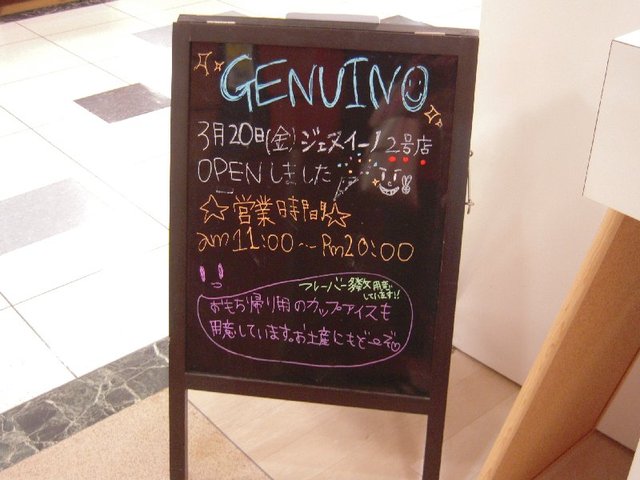 GENUINO
3月20日(金)ジェヌイーノ2号店
OPENしました
☆営業時間☆
am11:00～Pm20:00
フレーバー多数用意
しています!!
おもち帰り用のカップアイスも
用意しています。お土産にもどーぞ♡